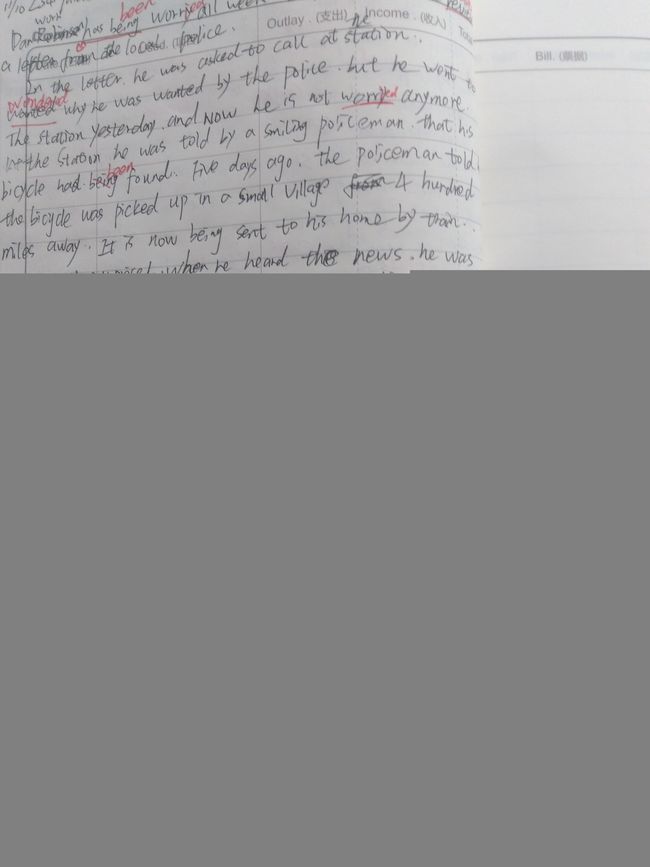 11/10
been
Dan has being worried all
Outlay. (支出) Income. (收入)
a letter from the local police.
Bill. (票据)
In the letter. he was asked to call at the station.
wondered
wanted why he was wanted by the police. but he went to
The station yesterday. and Now he is not worried anymore.
the station he was told by a smiling policeman. that his
been
bicycle had being found. Five days ago. the policeman told
the bicycle was picked up in a small village 4 hundred
miles away. It is now being sent to his home by train.
when he heard the news. he was